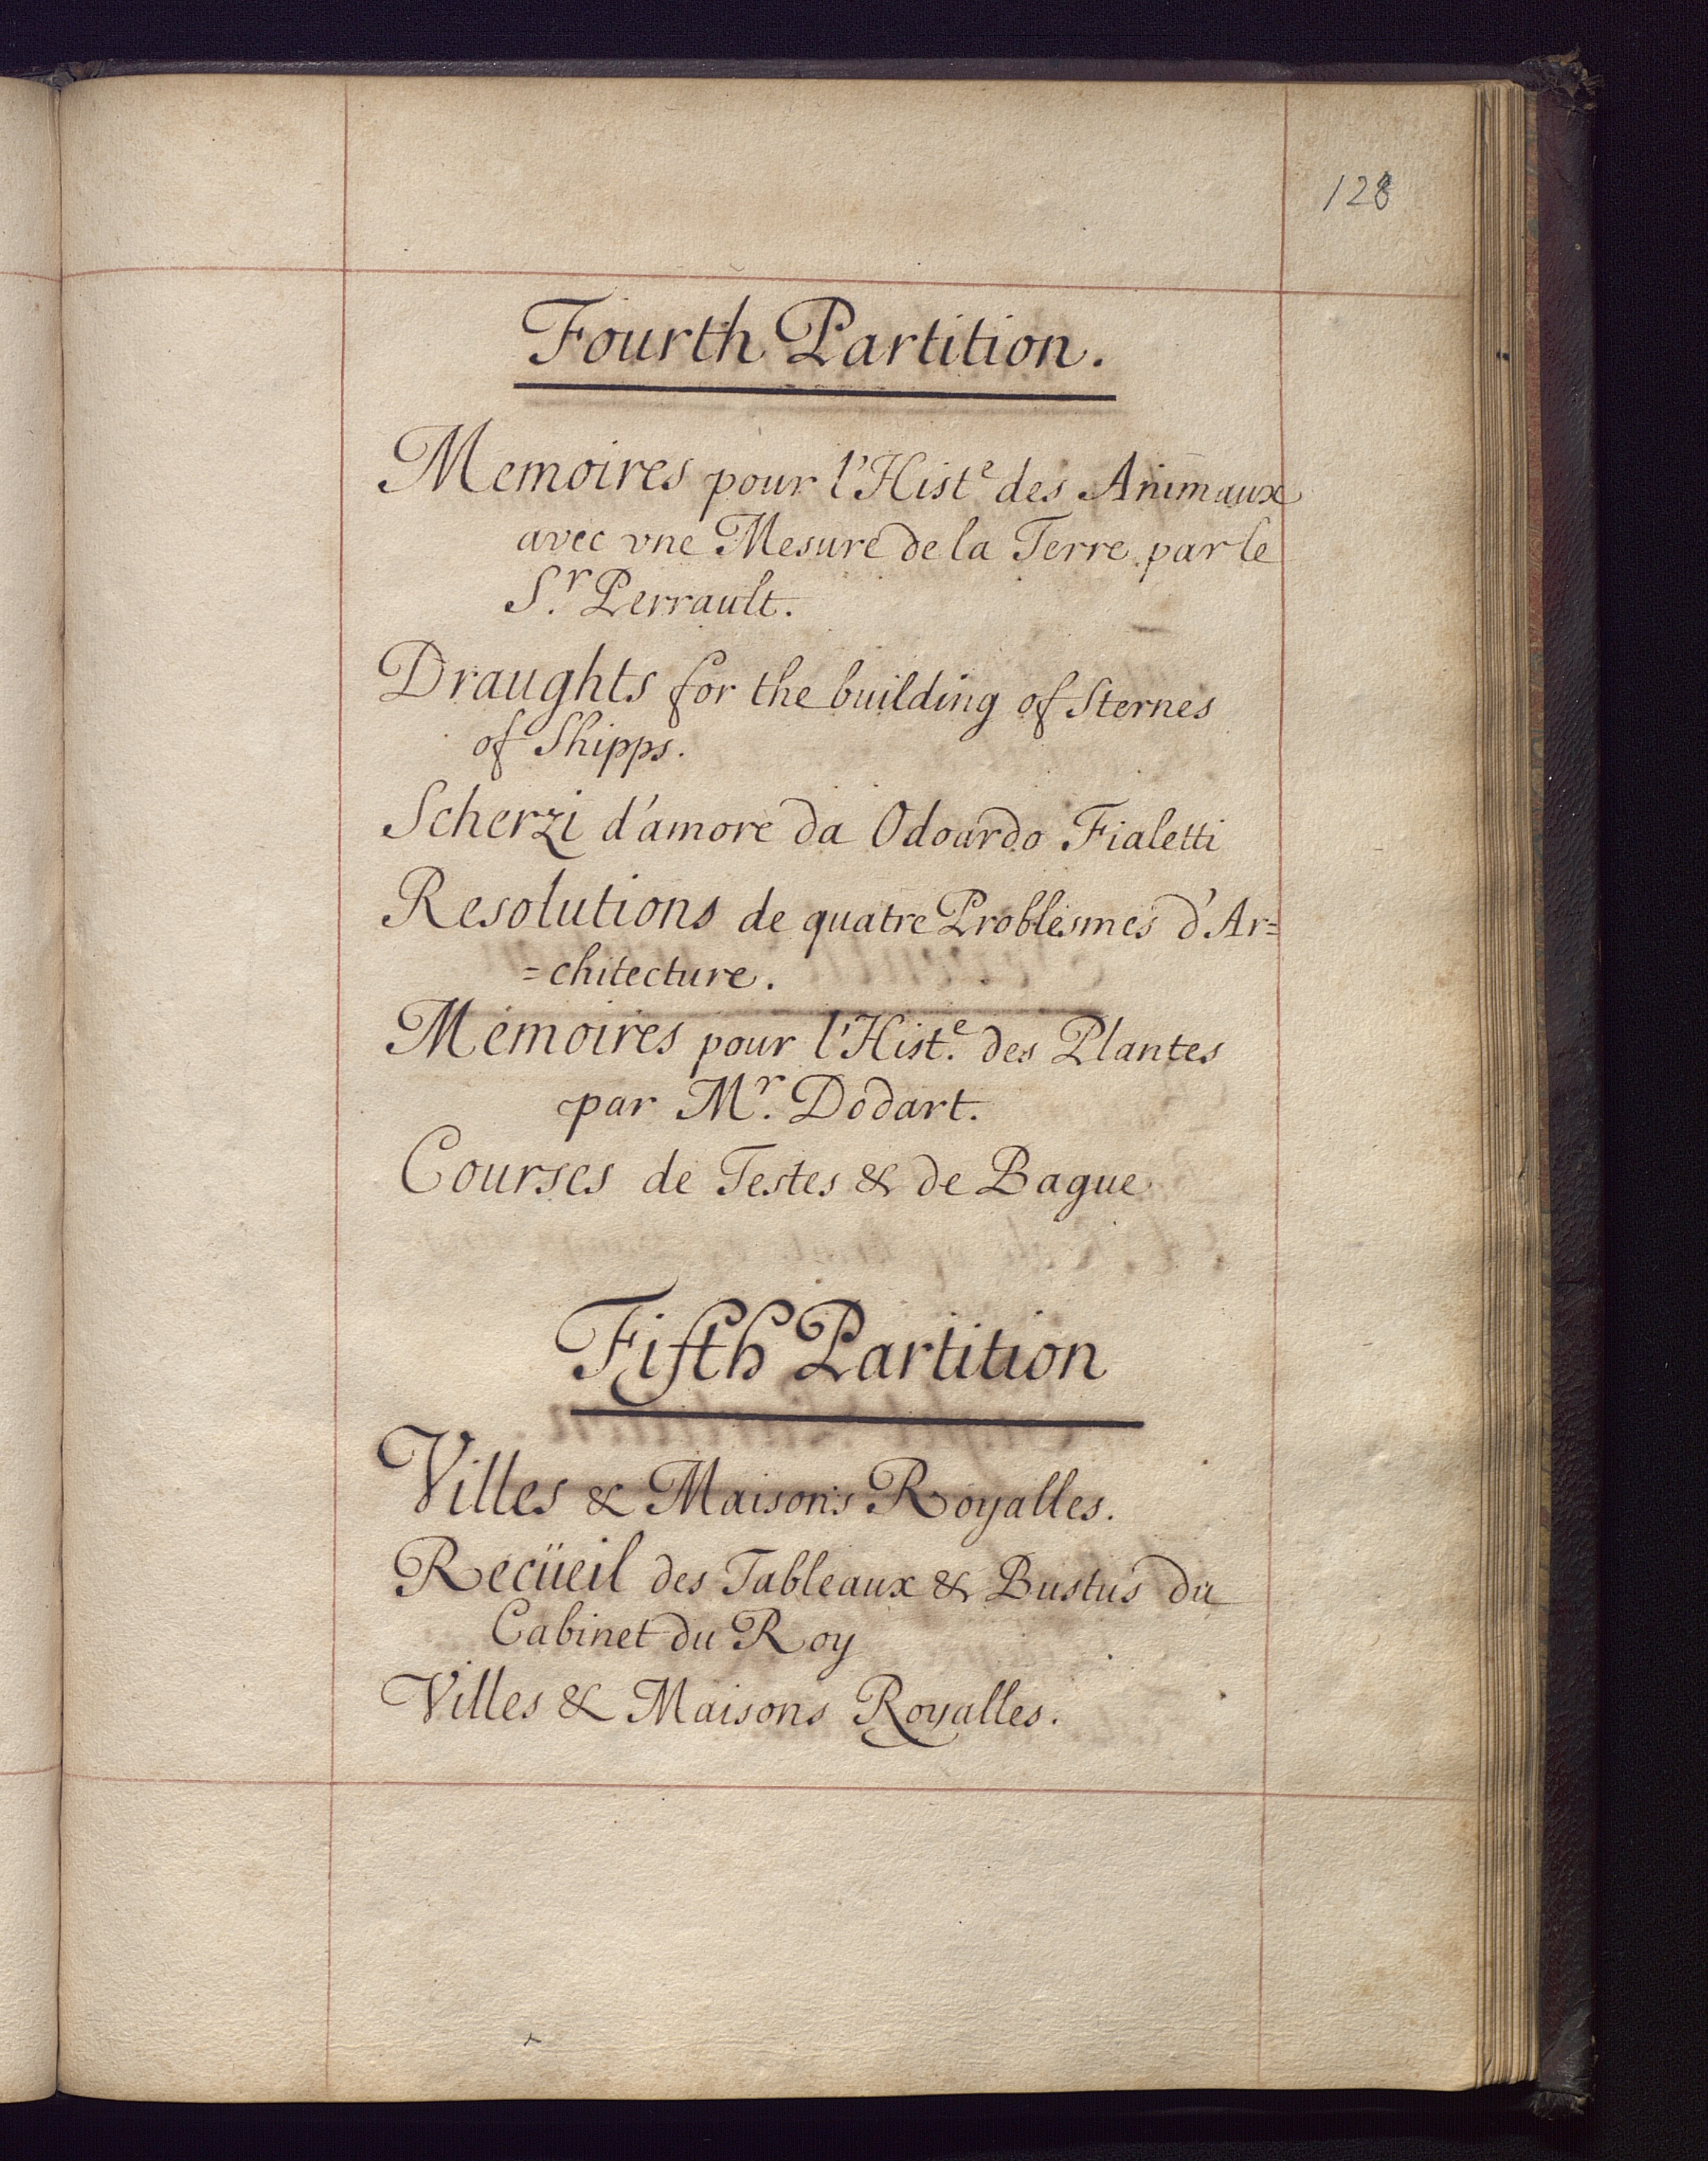 128
Fourth Partition.
Memoires pour l'Hist.e des Animaux
avec vne Mesure de la Terre par le
S.r Perrault.
Draughts for the building of Sternes
of Shipps.
Scherzi d'amore da Odoardo Fialetti
Resolutions de quatre Problesmes d'Ar=
=chitecture.
Memoires pour l'Hist.e des Plantes
par M.r Dodart.
Courses de Testes & de Bague
Fifth Partition
Villes & Maisons Royalles.
Recüeil des Tableaux & Bustus du
Cabinet du Roy
Villes & Maisons Royalles.